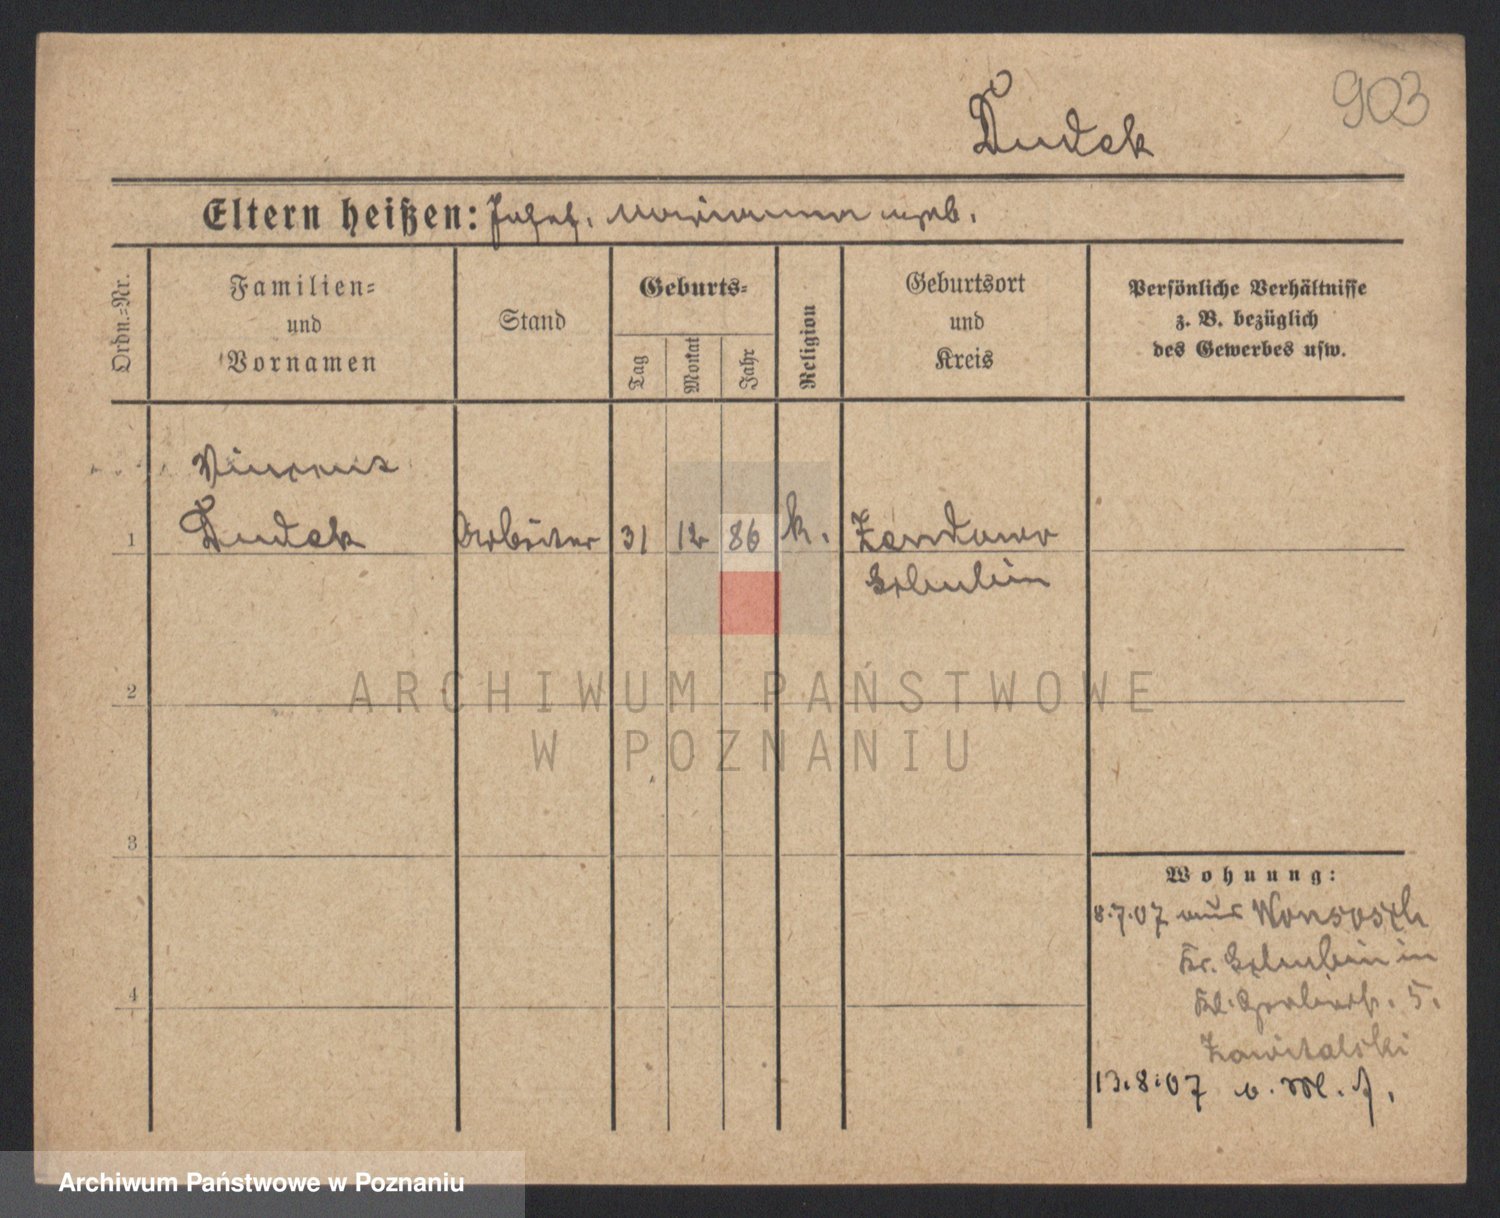 903
Dudek
Eltern heißen: Josef, Marianna geb.
Ordn.-Nr.
Familien-
und
Vornamen
Stand
Geburts-
Tag
Monat
Jahr
Religion
Geburtsort
und
Kreis
Persönliche Verhältnisse
z. B. bezüglich
des Gewerbes usw.
Vincenz
1 Dudek Arbeiter 31 12 86 k.
Schubin
2
3
4
Wohnung:
8.7.07 aus Wonsosch
Kr. Schubin in
Kl. Gerberstr. 5.
Zawitalski
13.8.07 v. M. f.
ARCHIWUM PAŃSTWOWE
W POZNANIU
Archiwum Państwowe w Poznaniu